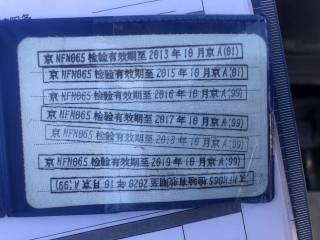 京NFN065检验有效期至2013年10月京A(01)
京NFN065检验有效期至2015年10月京A(01)
京NFN065检验有效期至2016年10月京A(99)
京NFN065检验有效期至2017年10月京A(99)
京NFN065检验有效期至2018年10月京A(99)
京NFN065检验有效期至2019年10月京A(99)
京NFN065检验有效期至2020年10月京A(99)